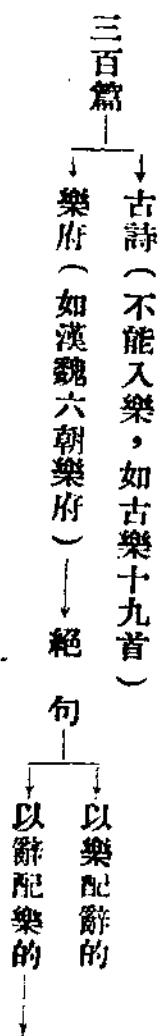 三百篇
古詩（不能入樂，如古樂十九首）
樂府（如漢魏六朝樂府）
絕句
以樂配辭的
以辭配樂的